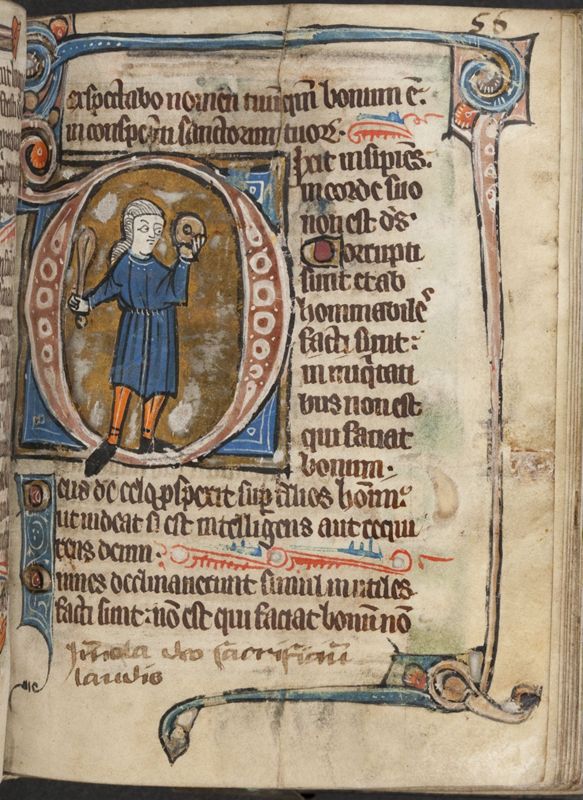 56
exspectabo nomen tuū qm̄ bonum ē·
in conspectu sanctorum tuoꝝ·
Dixit insipiēs·
in corde suo
non est dš·
Corrupti
sunt et ab
hominabiles
facti sunt:
in iniq̇tati
bus non est
qui faciat
bonum·
Deus de celo ꝓspexit sup̄ filios homī:
ut uideat si est intelligens aut requi
rens deum·
Omnes declinauerunt simul inutiles
facti sunt: nō est qui faciat bonū nō
Im̄ola deo sacrificiū
laudis